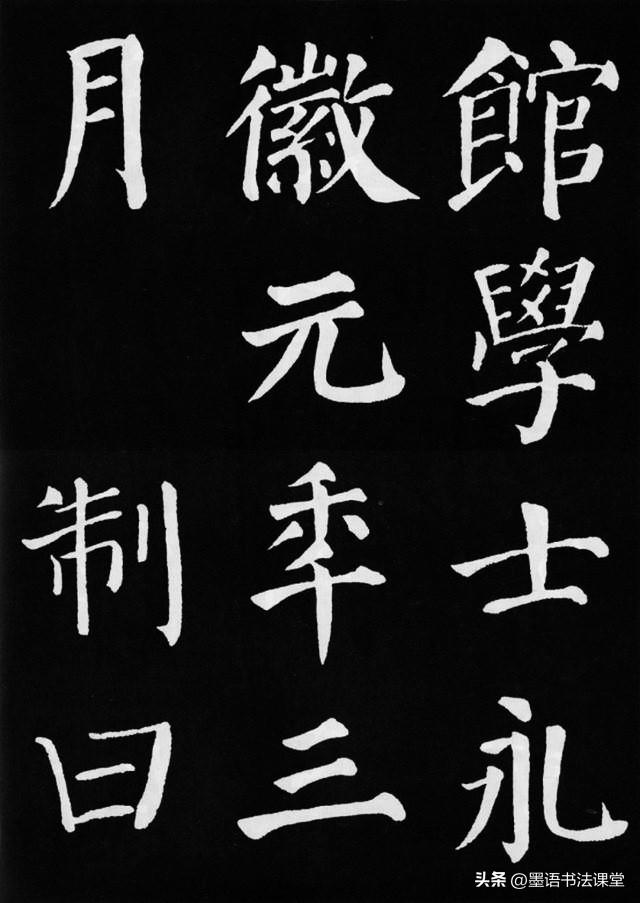 館學士永
徽元秊三
月 制曰
头条 @墨语书法课堂